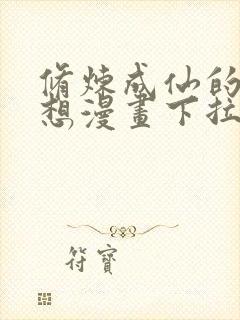 脩煉成仙的
想漫畫下拉
符寶